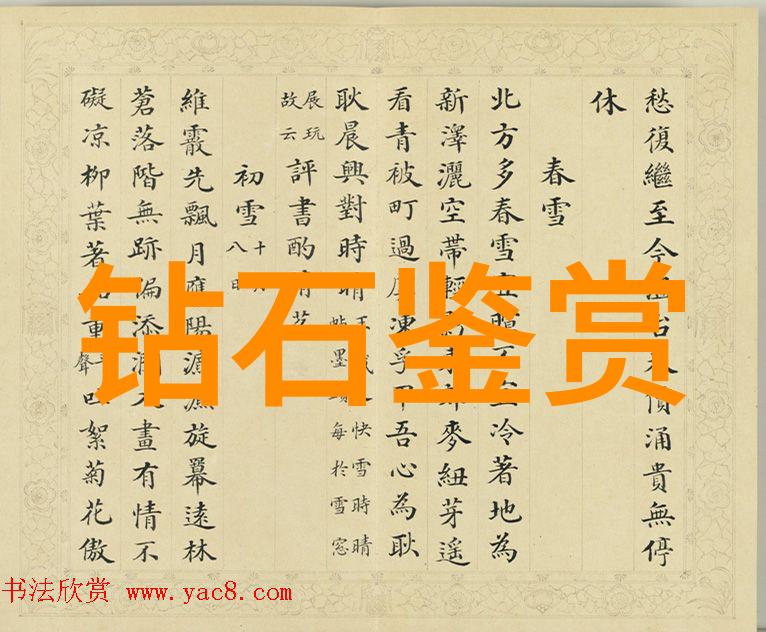 愁復繼至今
涌貴無停
休
春雪
北方多春雪
冷著地為
新澤灑空帶輕
麥紐芽遥
看青被町過
凍孚甲吾心為耿
耿晨興對時晴
快雪時晴
帖墨
每於雪窓
展玩
故云
評書酌
初雪
十月
八日
維霰先飄月應陽
旋羃遠林
蒼落階無跡偏添潤入畫有情不
礙凉柳葉著
重
聲
吹絮菊花傲
钻石鉴赏
书法欣赏 www.yac8.com